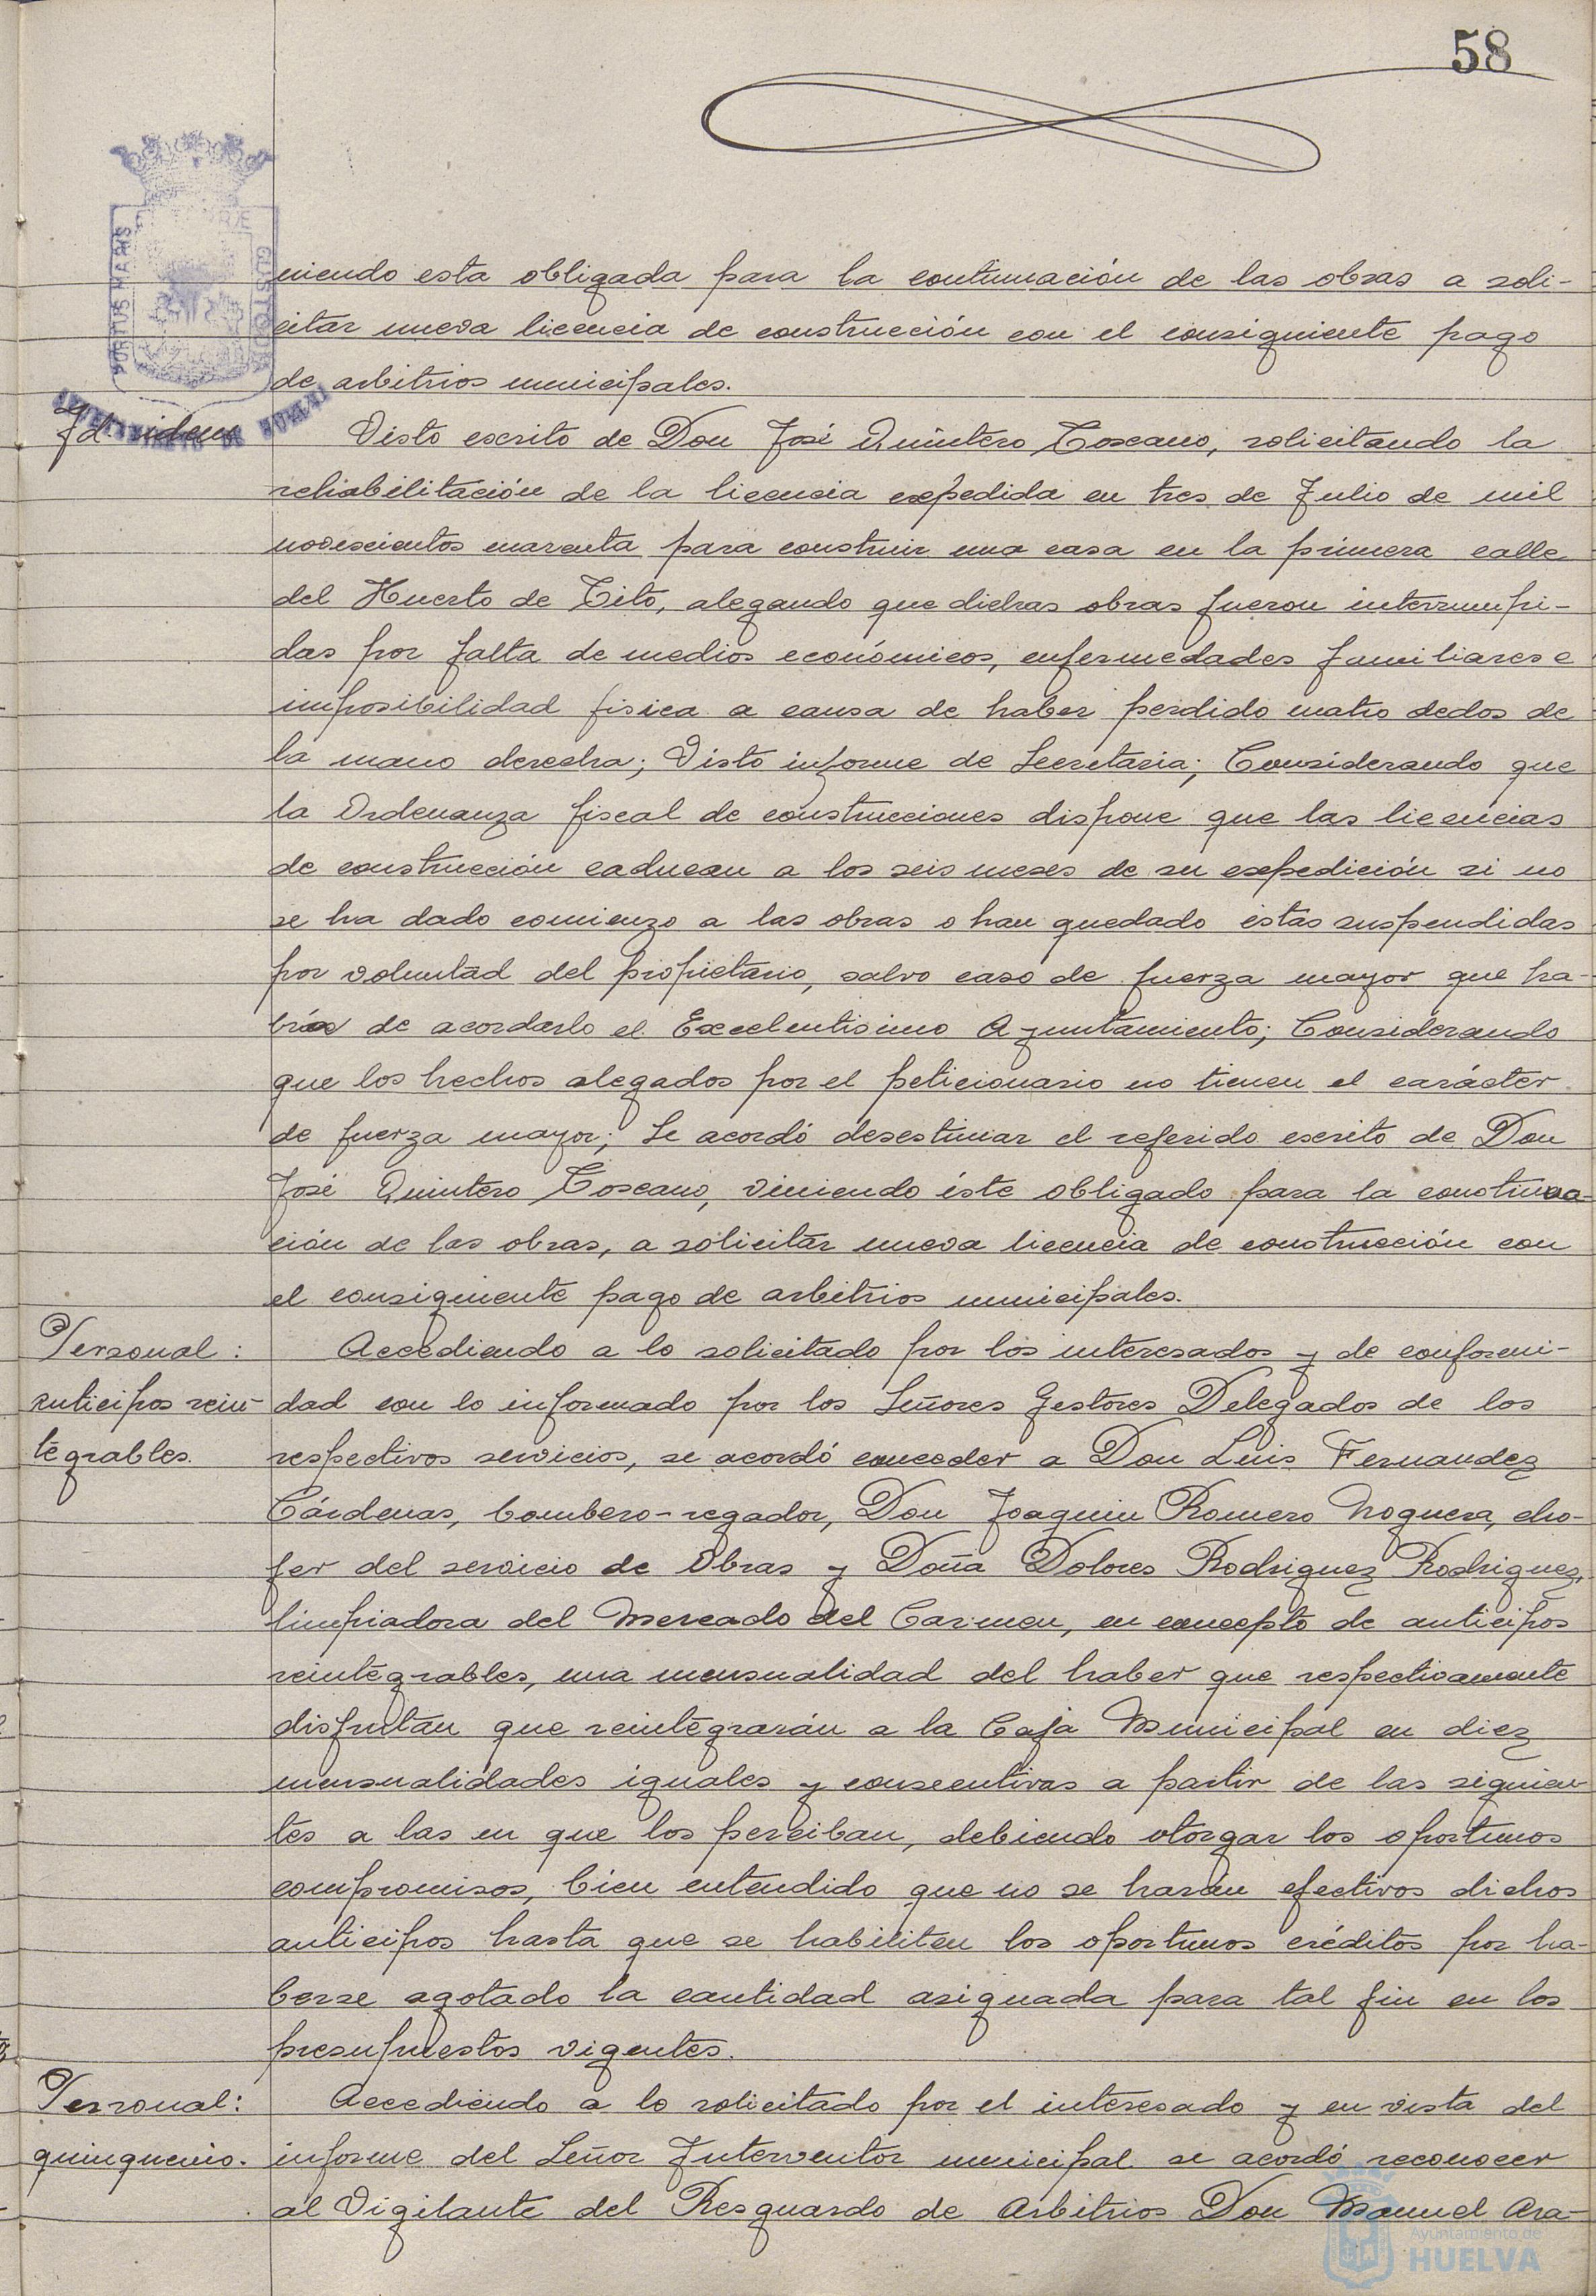 58
niendo esta obligada para la continuación de las obras a soli-
citar nueva licencia de construcción con el consiguiente pago
de arbitrios municipales.
PORTUS MARIS
CUSTODIA
AYUNTAMIENTO DE HUELVA
Id. idem
Visto escrito de Don José Quintero Toscano, solicitando la
rehabilitación de la licencia expedida en tres de Julio de mil
novescientos cuarenta para construir una casa en la primera calle
del Huerto de Tito, alegando que dichas obras fueron interrumpi-
das por falta de medios económicos, enfermedades familiares e
imposibilidad fisica a causa de haber perdido cuatro dedos de
la mano derecha; Visto informe de Secretaria; Considerando que
la Ordenanza fiscal de construcciones dispone que las licencias
de construcción caducan a los seis meses de su expedición si no
se ha dado comienzo a las obras o han quedado éstas suspendidas
por voluntad del propietario, salvo caso de fuerza mayor que ha-
brá de acordarlo el Excelentisimo Ayuntamiento; Considerando
que los hechos alegados por el peticionario no tienen el carácter
de fuerza mayor; Se acordó desestimar el referido escrito de Don
José Quintero Toscano, viniendo éste obligado para la continua-
ción de las obras, a solicitar nueva licencia de construcción con
el consiguiente pago de arbitrios municipales.
Personal:
anticipos rein-
tegrables.
Accediendo a lo solicitado por los interesados y de conformi-
dad con lo informado por los Señores Gestores Delegados de los
respectivos servicios, se acordó conceder a Don Luis Fernandez
Cárdenas, bombero-regador, Don Joaquin Romero Noguera, cho-
fer del servicio de Obras y Doña Dolores Rodriguez Rodriguez,
limpiadora del Mercado del Carmen, en concepto de anticipos
reintegrables, una mensualidad del haber que respectivamente
disfrutan que reintegrarán a la Caja Municipal en diez
mensualidades iguales y consecutivas a partir de las siguien-
tes a las en que los perciban, debiendo otorgar los oportunos
compromisos, bien entendido que no se harán efectivos dichos
anticipos hasta que se habiliten los oportunos créditos por ha-
berse agotado la cantidad asignada para tal fin en los
presupuestos vigentes.
Personal:
quinquenio.
Accediendo a lo solicitado por el interesado y en vista del
informe del Señor Interventor municipal se acordó reconocer
al Vigilante del Resguardo de Arbitrios Don Manuel Ara-
Ayuntamiento de
HUELVA